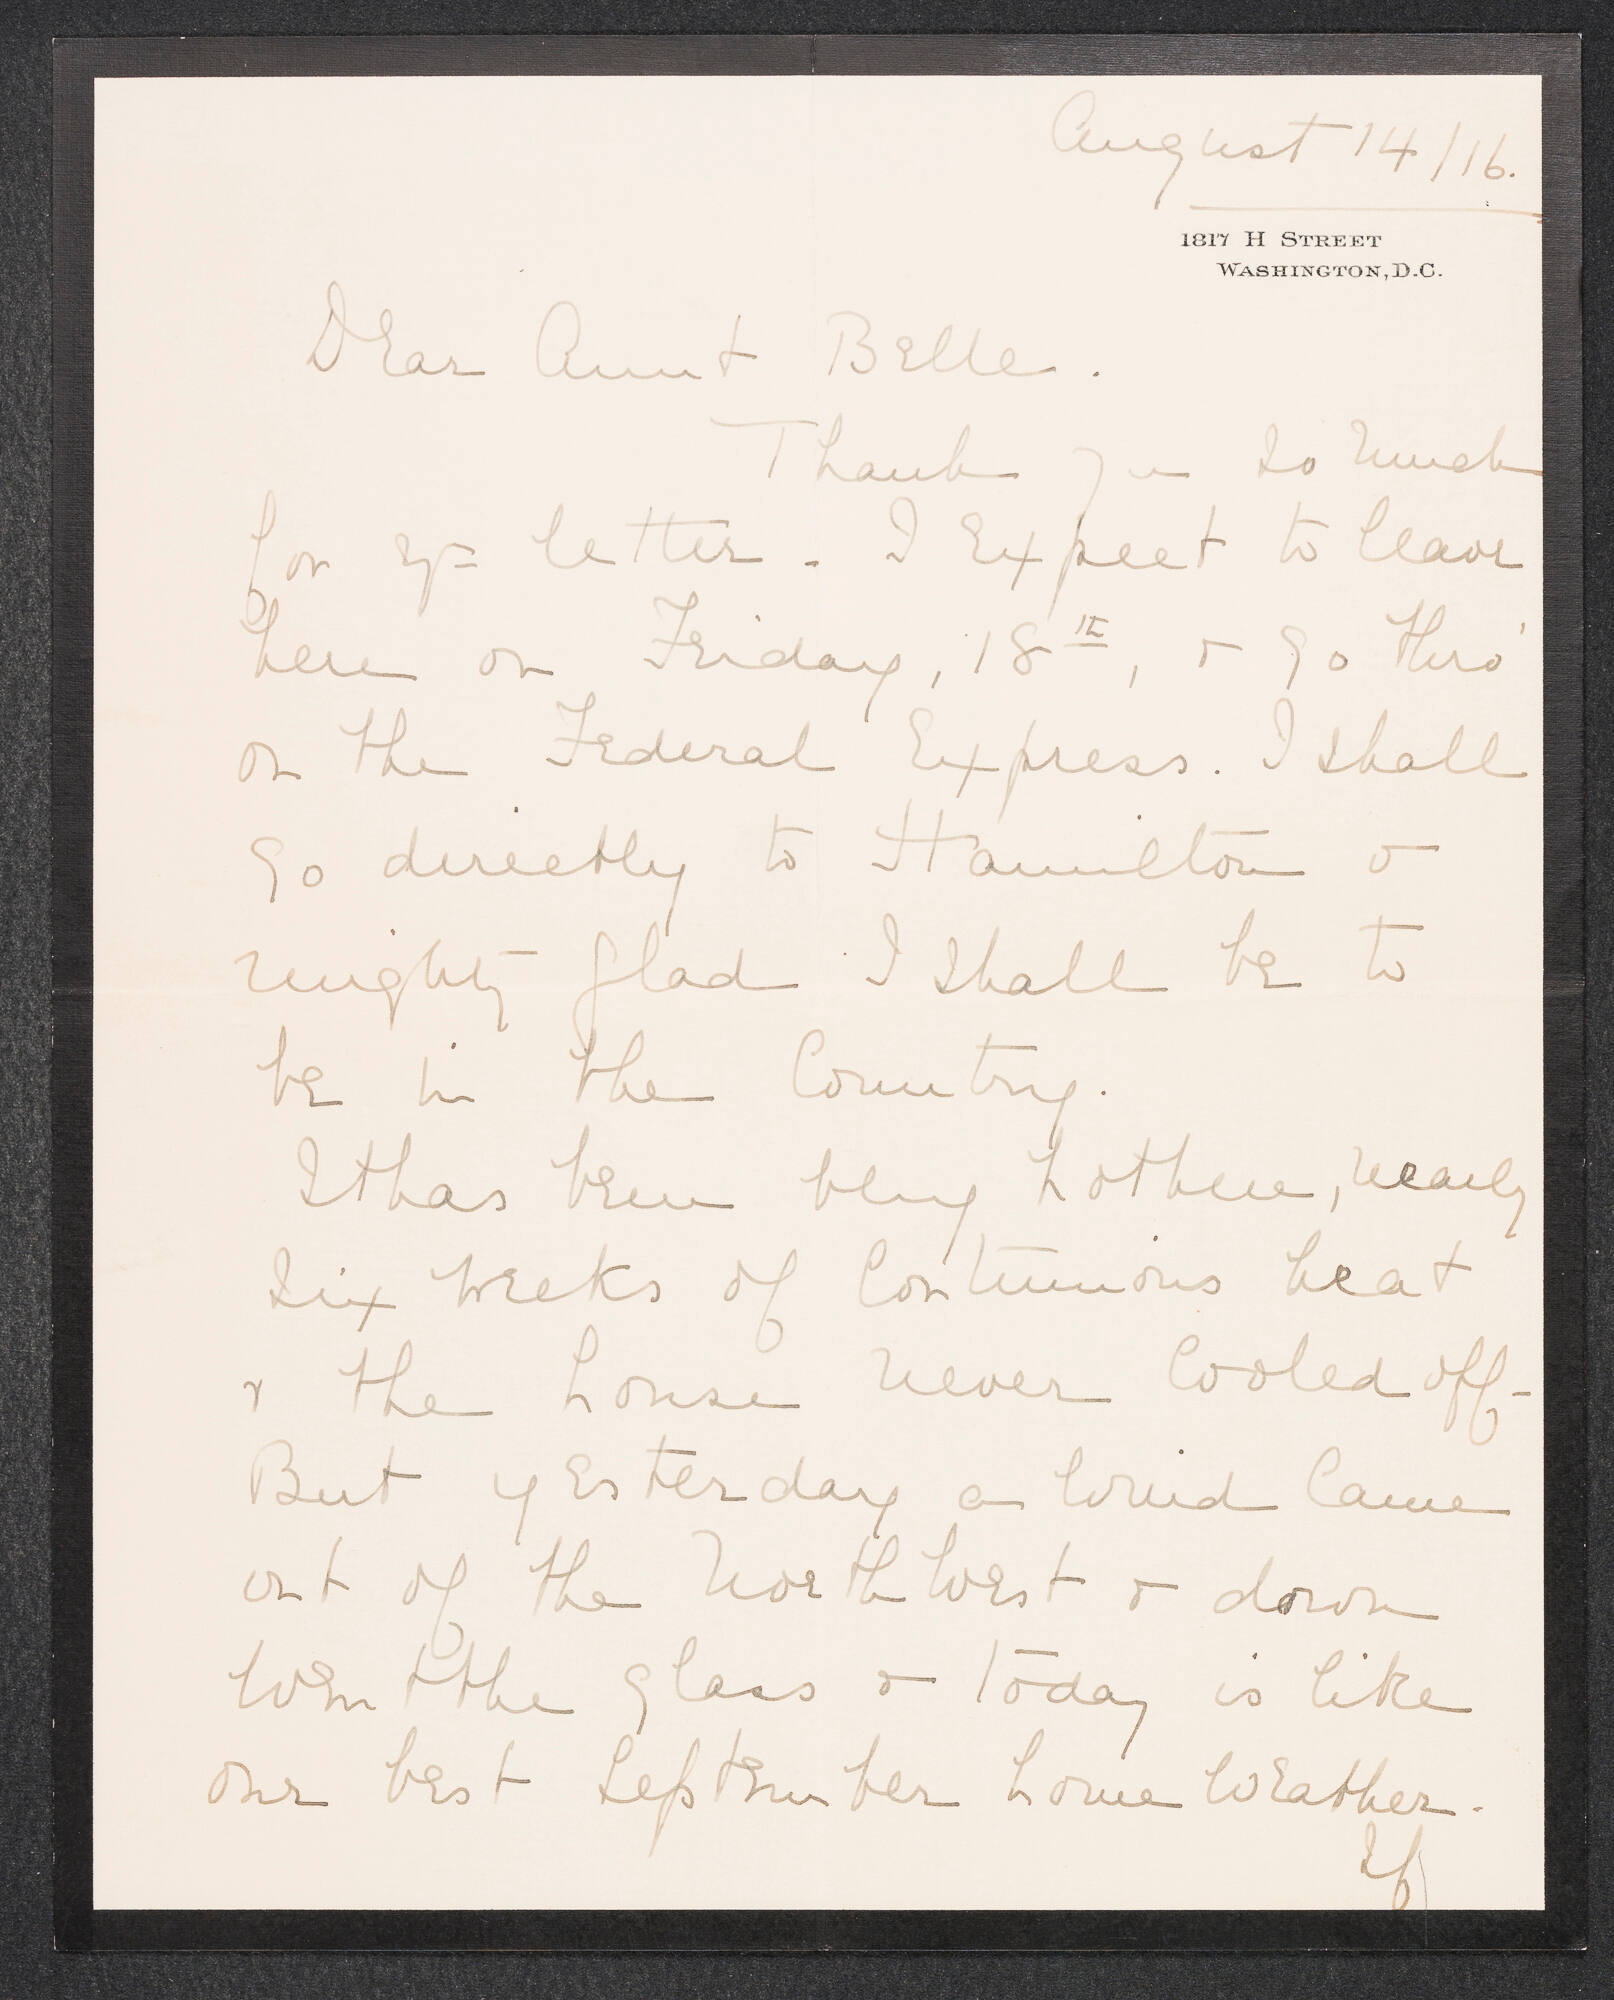 August 14/16.
1817 H STREET
WASHINGTON, D.C.
Dear Aunt Belle.
Thank you so much
for yr letter. I expect to leave
here on Friday, 18th, & go thro'
on the Federal Express. I shall
go directly to Hamilton &
mighty glad I shall be to
be in the Country.
It has been very hot here, nearly
six weeks of Continuous heat
& the house never Cooled off-
But yesterday a wind Came
out of the North West & down
went the glass & today is like
our best September home weather.
If